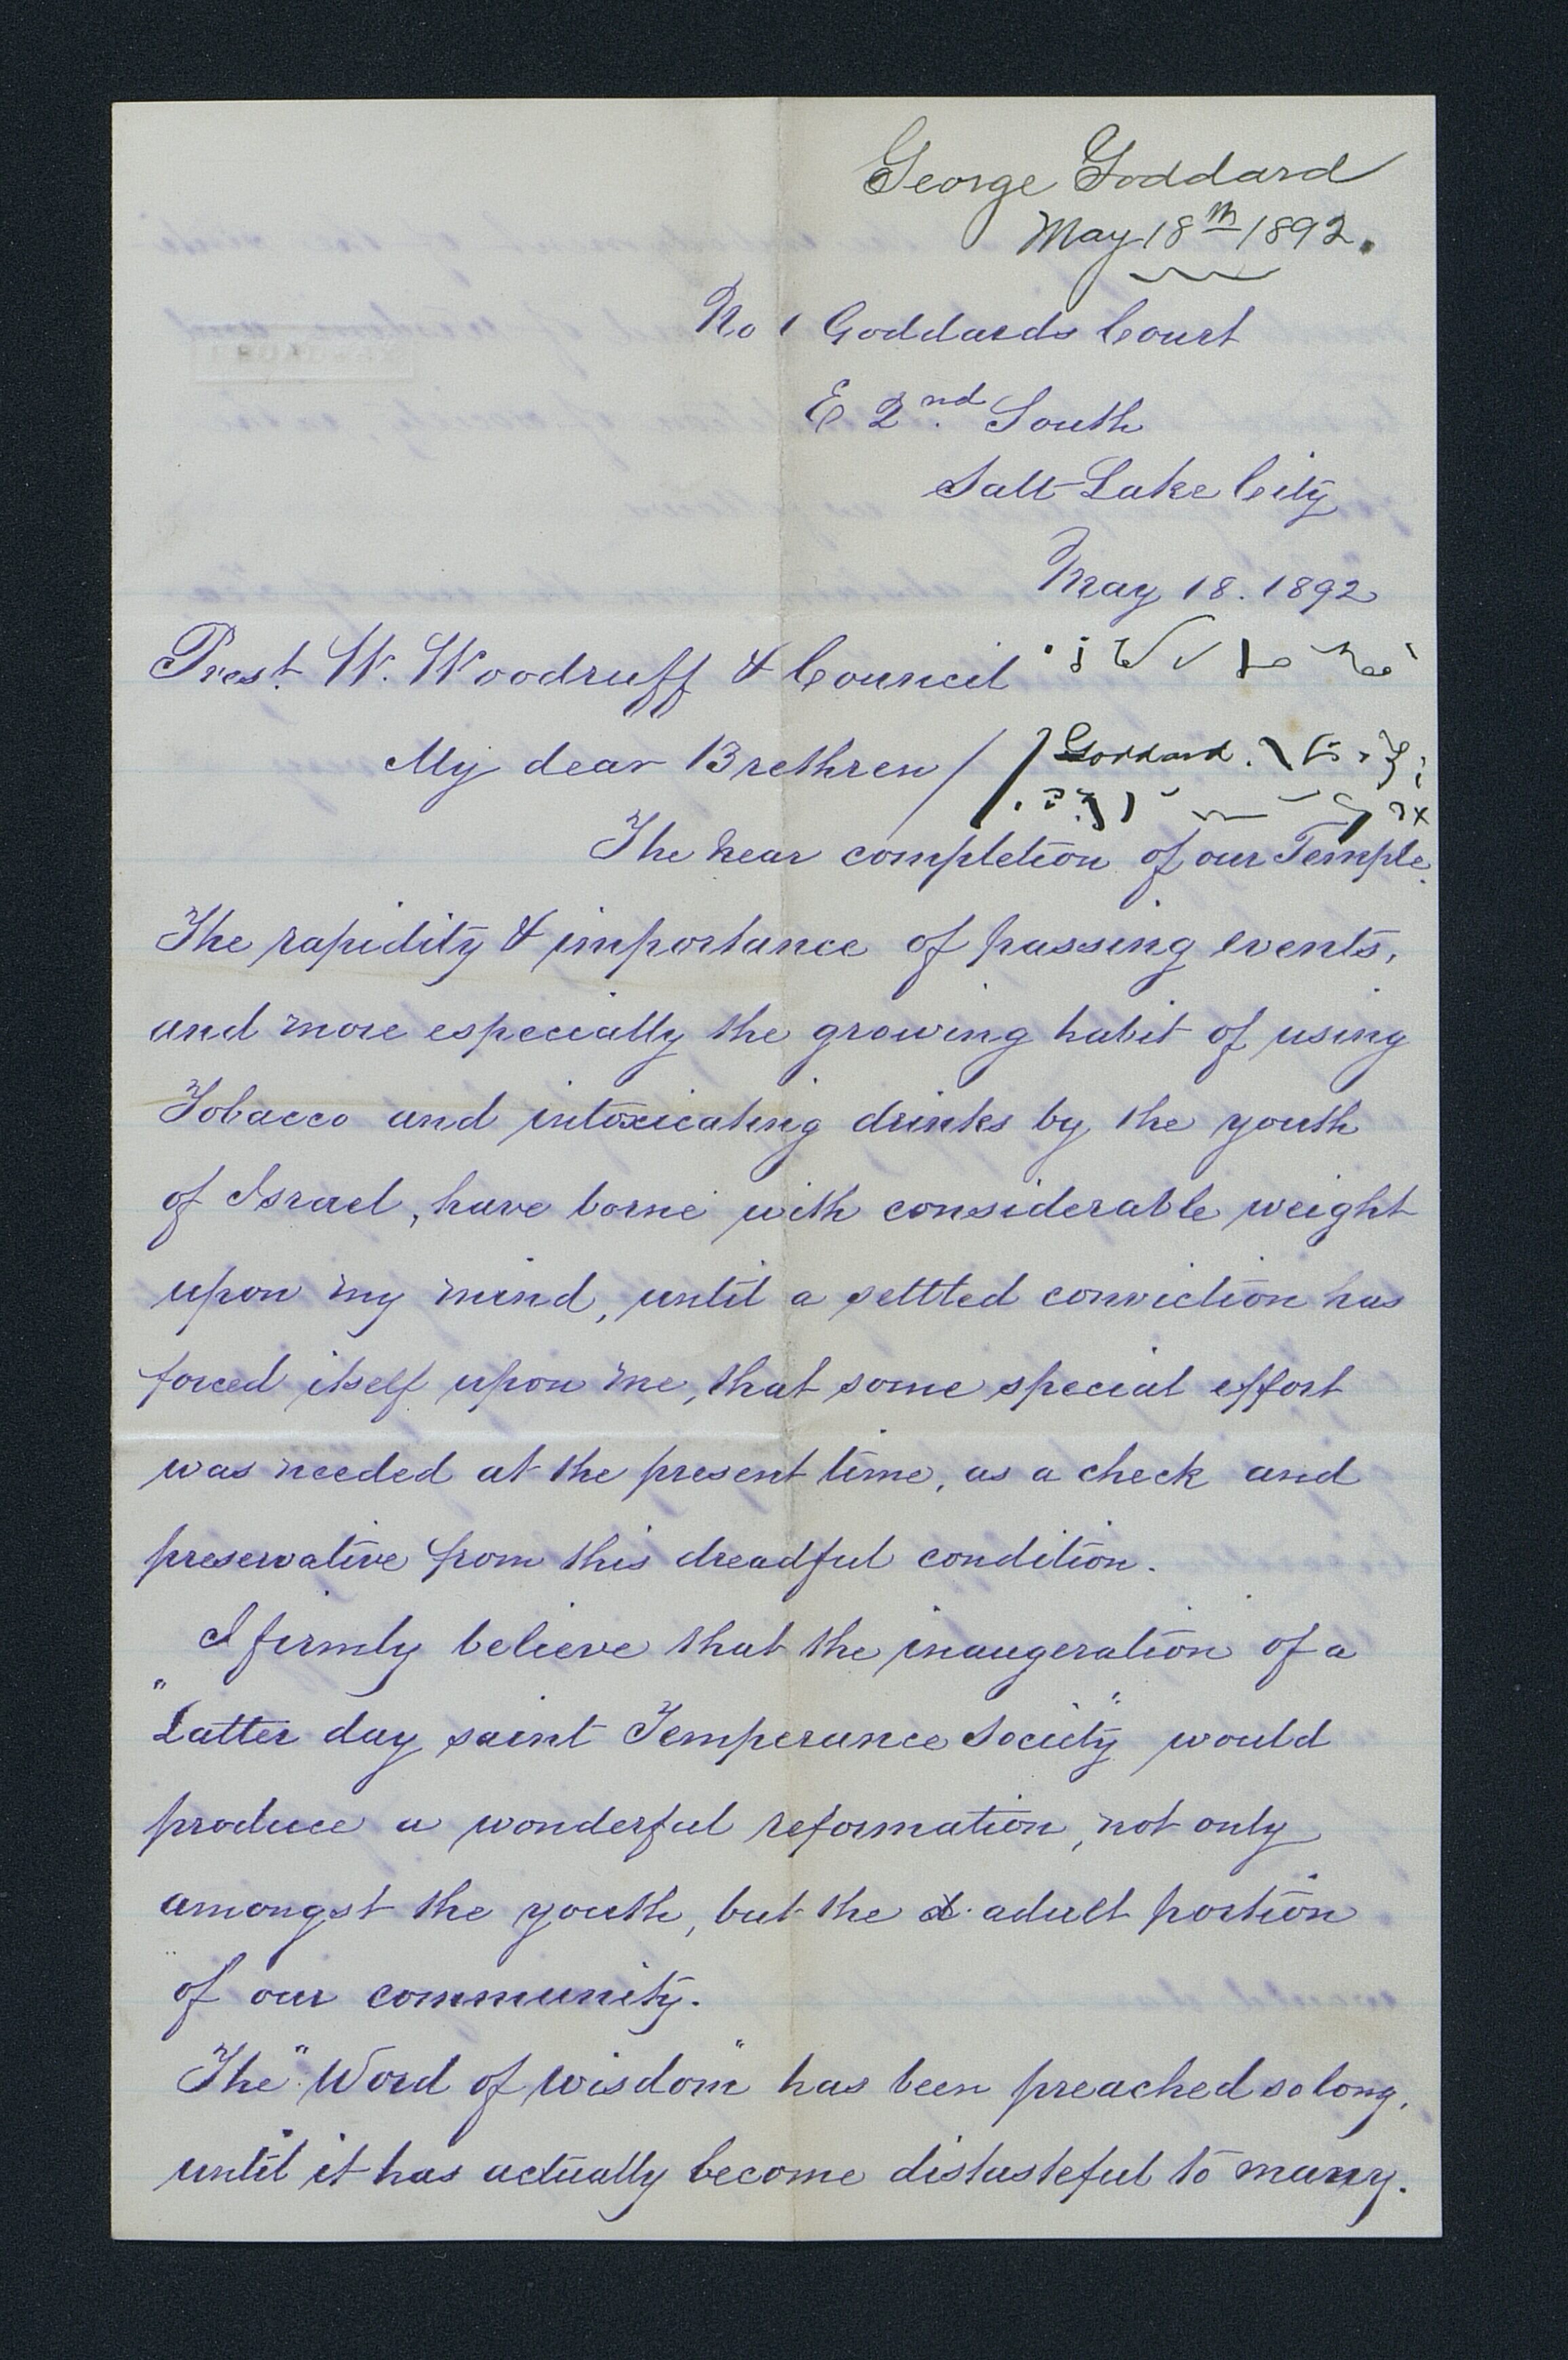 George Goddard
May 18th 1892.
No 1 Goddards Court
E 2nd. South
Salt Lake City
May 18. 1892
Prest. W. Woodruff & Council
My dear Brethren /
Goddard.
The near completion of our Temple.
The rapidity & importance of passing events,
and more especially the growing habit of using
Tobacco and intoxicating drinks by the youth
of Israel, have borne with considerable weight
upon my mind, until a settted conviction has
forced itself upon me, that some special effort
was needed at the present time, as a check and
preservative from this dreadful condition.
I firmly believe that the inaugeration of a
"Latter day saint Temperance Society" would
produce a wonderful reformation, not only
amongst the youth, but the adult portion
of our community.
The "Word of Wisdom" has been preached so long,
until it has actually become distasteful to many.